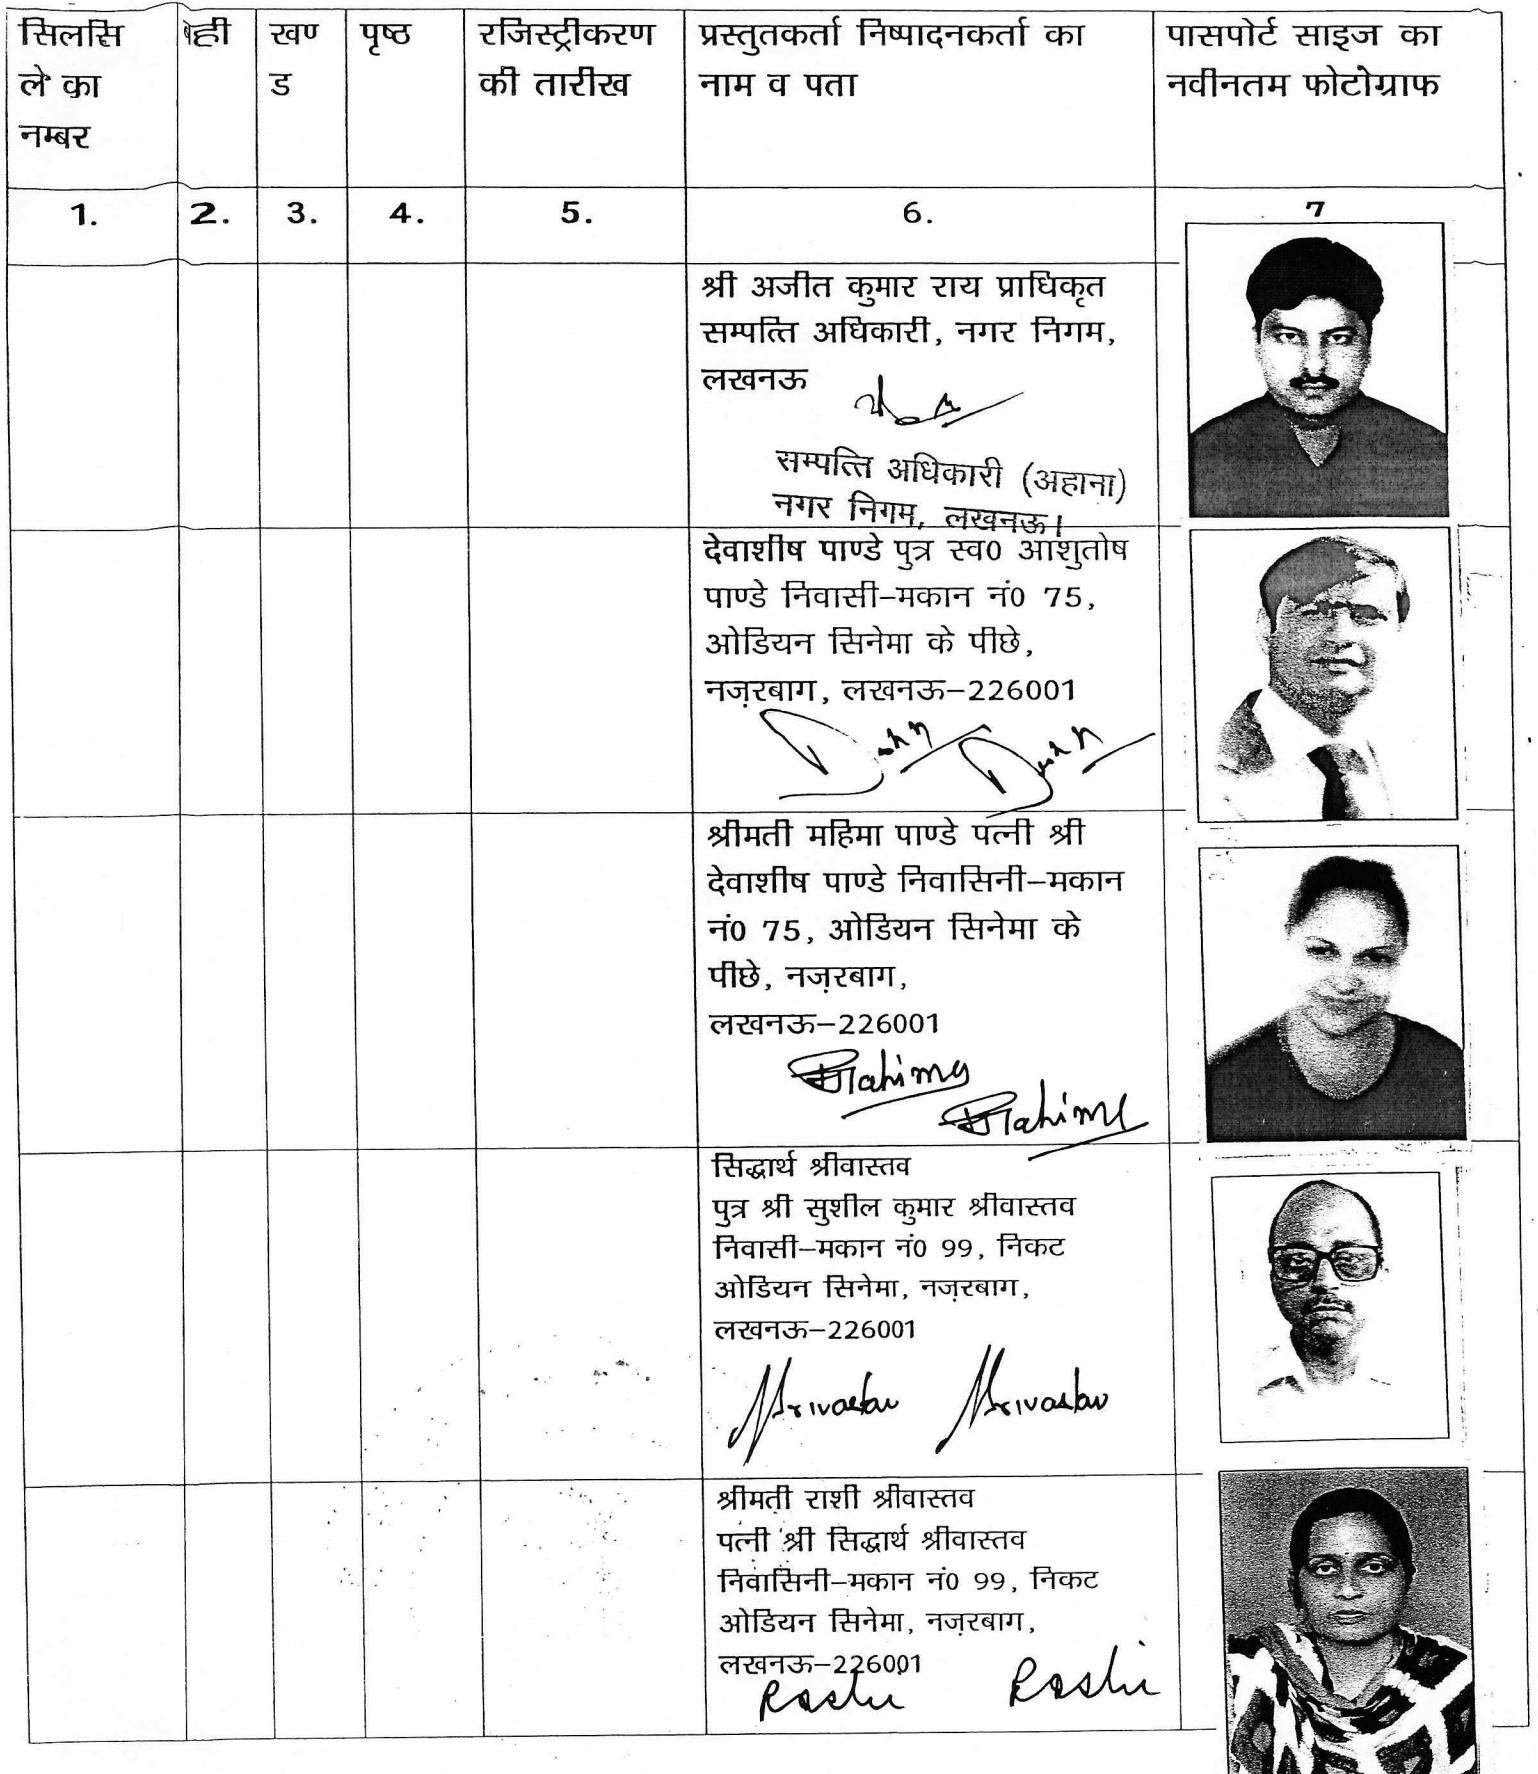 सिलसि
ले का
नम्बर
बही
खण
ड
पृष्ठ
रजिस्ट्रीकरण
की तारीख
प्रस्तुतकर्ता निष्पादनकर्ता का
नाम व पता
पासपोर्ट साइज का
नवीनतम फोटोग्राफ
1. 2. 3. 4. 5. 6. 7
श्री अजीत कुमार राय प्राधिकृत
सम्पत्ति अधिकारी, नगर निगम,
लखनऊ
सम्पत्ति अधिकारी (अहाना)
नगर निगम, लखनऊ।
देवाशीष पाण्डे पुत्र स्व0 आशुतोष
पाण्डे निवासी–मकान नं0 75,
ओडियन सिनेमा के पीछे,
नज़रबाग, लखनऊ–226001
श्रीमती महिमा पाण्डे पत्नी श्री
देवाशीष पाण्डे निवासिनी–मकान
नं0 75, ओडियन सिनेमा के
पीछे, नज़रबाग,
लखनऊ–226001
Mahima
Mahima
सिद्धार्थ श्रीवास्तव
पुत्र श्री सुशील कुमार श्रीवास्तव
निवासी–मकान नं0 99, निकट
ओडियन सिनेमा, नज़रबाग,
लखनऊ–226001
Srivastav Srivastav
श्रीमती राशी श्रीवास्तव
पत्नी श्री सिद्धार्थ श्रीवास्तव
निवासिनी–मकान नं0 99, निकट
ओडियन सिनेमा, नज़रबाग,
लखनऊ–226001
Rashi Rashi